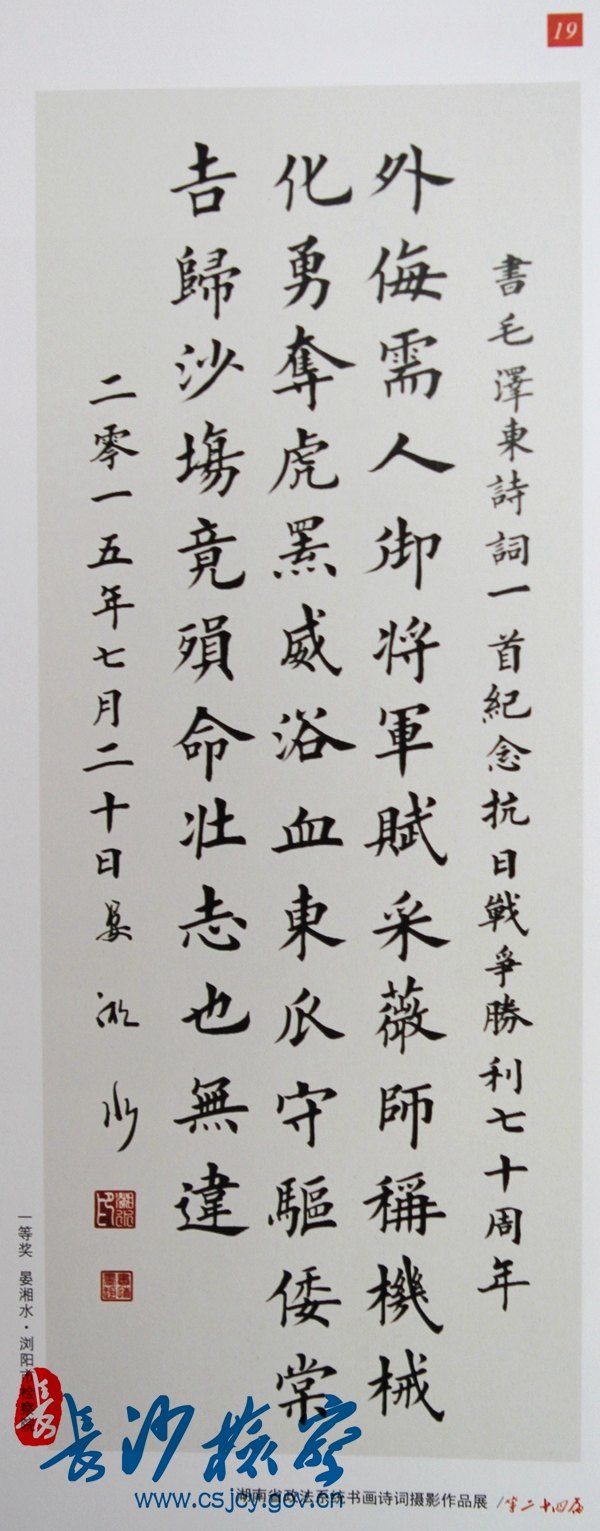 19
書毛澤東詩詞一首紀念抗日戰爭勝利七十周年
外侮需人御將軍賦采薇師稱機械
化勇奪虎羆威浴血東瓜守驅倭棠
吉歸沙場竟殞命壯志也無違
二零一五年七月二十日晏湘水
一等奖 晏湘水·浏阳市检察院
長
長沙檢察
www.csjoy.gov.cn
湖南省政法系统书画诗词摄影作品展 第二十四届